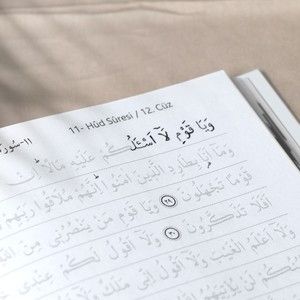 11- Hûd Sûresi / 12. Cüz
وَيَا قَوْمِ لَآ اَسْـَٔلُكُمْ عَلَيْهِ مَالًا
وَمَٓا اَنَا۬ بِطَارِدِ الَّذ۪ينَ اٰمَنُوا اِنَّهُمْ مُلَاقُوا رَبِّهِمْ
قَوْمًا تَجْهَلُونَ ﴿٢٩﴾ وَيَا قَوْمِ مَنْ يَنْصُرُن۪ي مِنَ
اَفَلَا تَذَكَّرُونَ ﴿٣٠﴾ وَلَٓا اَقُولُ لَكُمْ عِنْد۪ي
وَلَٓا اَعْلَمُ الْغَيْبَ وَلَٓا اَقُولُ اِنّ۪ي مَلَكٌ وَلَٓا